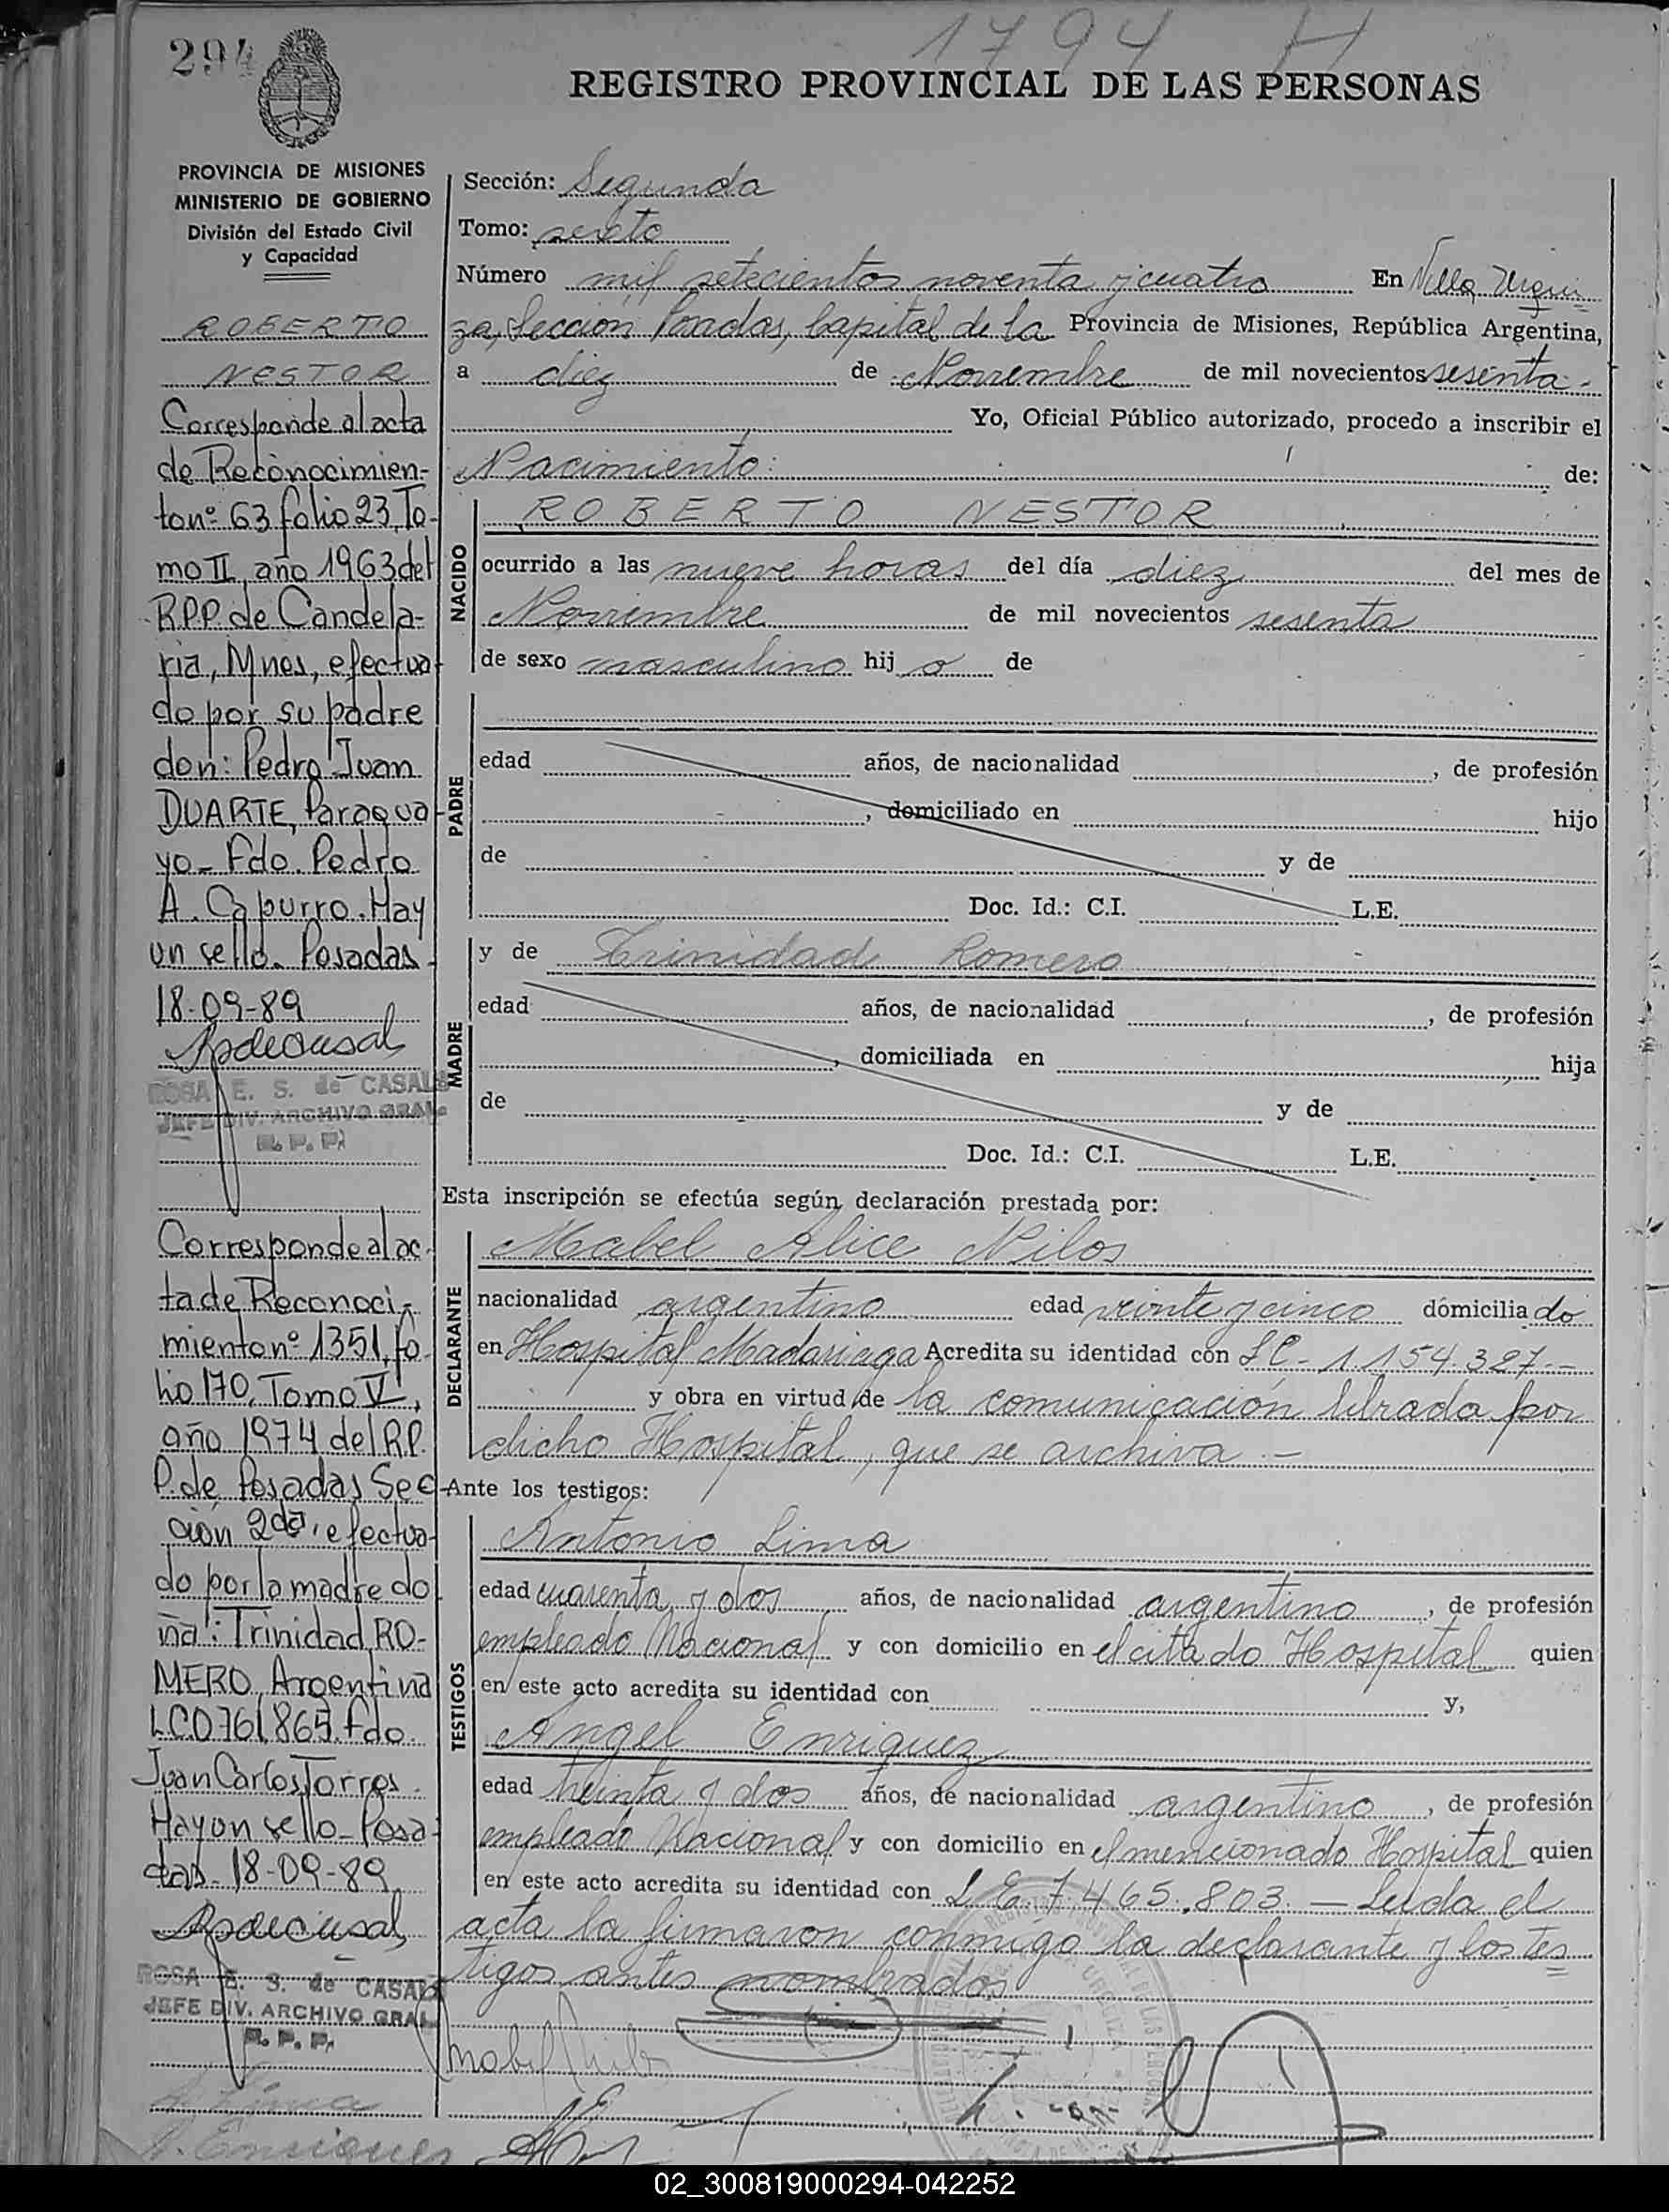 1794 H
294
REGISTRO PROVINCIAL DE LAS PERSONAS
PROVINCIA DE MISIONES
MINISTERIO DE GOBIERNO
División del Estado Civil
y Capacidad
ROBERTO
NESTOR
Corresponde al acta
de Reconocimien-
to nº 63 folio 23, To-
mo II, año 1963 del
R.P.P. de Candela-
ria, Mnes, efectua-
do por su padre
don: Pedro Juan
DUARTE, Paragua-
yo - Fdo. Pedro
A. Capurro. Hay
un sello. Posadas
18-09-89
ROSA E. S. de CASALS
JEFE DIV. ARCHIVO GRAL.
R. P. P.
Corresponde al ac-
ta de Reconoci-
miento nº 1351, fo-
lio 170, Tomo V,
año 1974 del R.P.
P. de Posadas Sec-
ción 2da, efectua-
do por la madre do
ña: Trinidad RO-
MERO, Argentina
L.C. 0.761.865. Fdo.
Juan Carlos Torres.
Hay un sello - Posa-
das. 18-09-89
ROSA E. S. de CASALS
JEFE DIV. ARCHIVO GRAL.
R. P. P.
A. Lima
A. Enriquez
Sección: Segunda
Tomo: sexto
Número mil setecientos noventa y cuatro En Villa Urqui
za, Sección Posadas, Capital de la Provincia de Misiones, República Argentina,
a diez de Noviembre de mil novecientos sesenta.-
Yo, Oficial Público autorizado, procedo a inscribir el
Nacimiento: de:
NACIDO
ROBERTO NESTOR
ocurrido a las nueve horas del día diez del mes de
Noviembre de mil novecientos sesenta
de sexo masculino hijo de
PADRE
edad años, de nacionalidad , de profesión
, domiciliado en hijo
de y de
Doc. Id.: C.I. L.E.
MADRE
y de Trinidad Romero
edad años, de nacionalidad , de profesión
, domiciliada en hija
de y de
Doc. Id.: C.I. L.E.
Esta inscripción se efectúa según declaración prestada por:
DECLARANTE
Mabel Alice Nilos
nacionalidad argentina edad veinte y cinco domiciliado
en Hospital Madariaga Acredita su identidad con L C - 1.154.327.-
y obra en virtud de la comunicación librada por
dicho Hospital, que se archiva.-
Ante los testigos:
TESTIGOS
Antonio Lima
edad cuarenta y dos años, de nacionalidad argentino, de profesión
empleado Nacional y con domicilio en el citado Hospital quien
en este acto acredita su identidad con y,
Angel Enriquez
edad treinta y dos años, de nacionalidad argentino, de profesión
empleado Nacional y con domicilio en el mencionado Hospital quien
en este acto acredita su identidad con L E 7.465.803. — Leida el
acta la firmaron conmigo la declarante y los tes
tigos antes nombrados
02_300819000294-042252